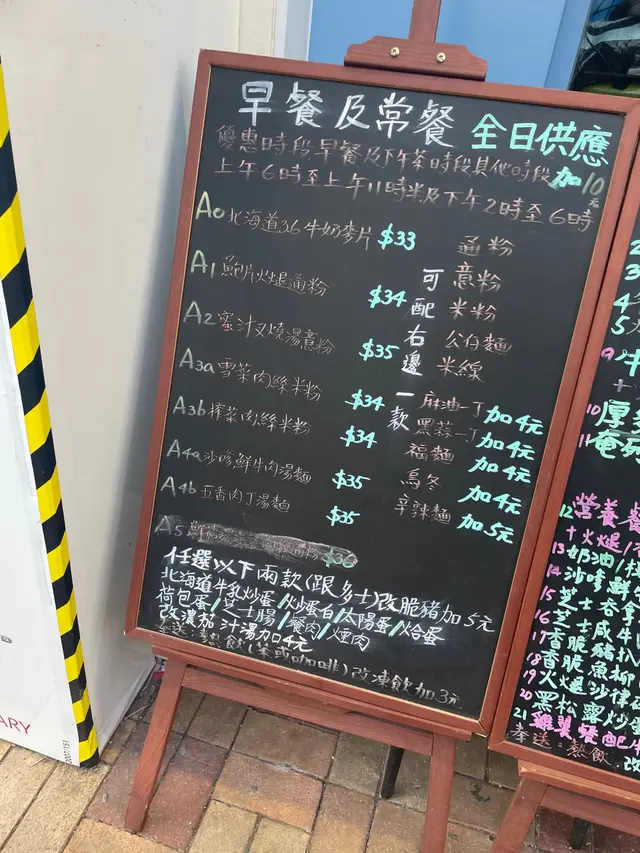 早餐及常餐 全日供應
優惠時段早餐及下午茶時段其他時段加10元
上午6時至上午11時半及下午2時至6時
A0 北海道3.6牛奶麥片 $33
A1 鮑片火腿通粉 $34
A2 蜜汁叉燒湯意粉 $35
A3a 雪菜肉絲米粉 $34
A3b 榨菜肉絲米粉 $34
A4a 沙嗲鮮牛肉湯麵 $35
A4b 五香肉丁湯麵 $35
A5
可配右邊一款
通粉
意粉
米粉
公仔麵
米線
麻油一丁 加4元
黑蒜一丁 加4元
福麵 加4元
烏冬 加4元
辛辣麵 加5元
任選以下兩款(跟多士)改脆豬加5元
北海道牛乳炒蛋/炒蛋白/太陽蛋/烚蛋
荷包蛋/芝士腸/餐肉/煙肉
改濃茄汁湯加4元
奉送:熱飲(茶或咖啡)改凍飲加3元
10 厚
11
12 營養
+火腿/
13 奶油/
14 沙嗲鮮
15 芝士
16 芝士咸牛
17 香脆豬扒
18 香脆魚柳
19 火腿沙律
20 黑松露炒
21
奉送:熱飲
改
ARY